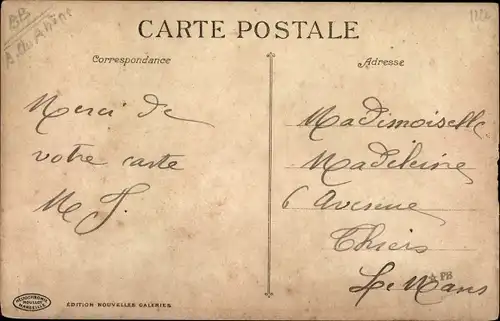 BB
CARTE POSTALE
Correspondance
Adresse
Merci de
votre carte
M J.
Mademoiselle
Madeleine
6 Avenue
Thiers
Le Mans
PB
MARSEILLE
EDITION NOUVELLES GALERIES